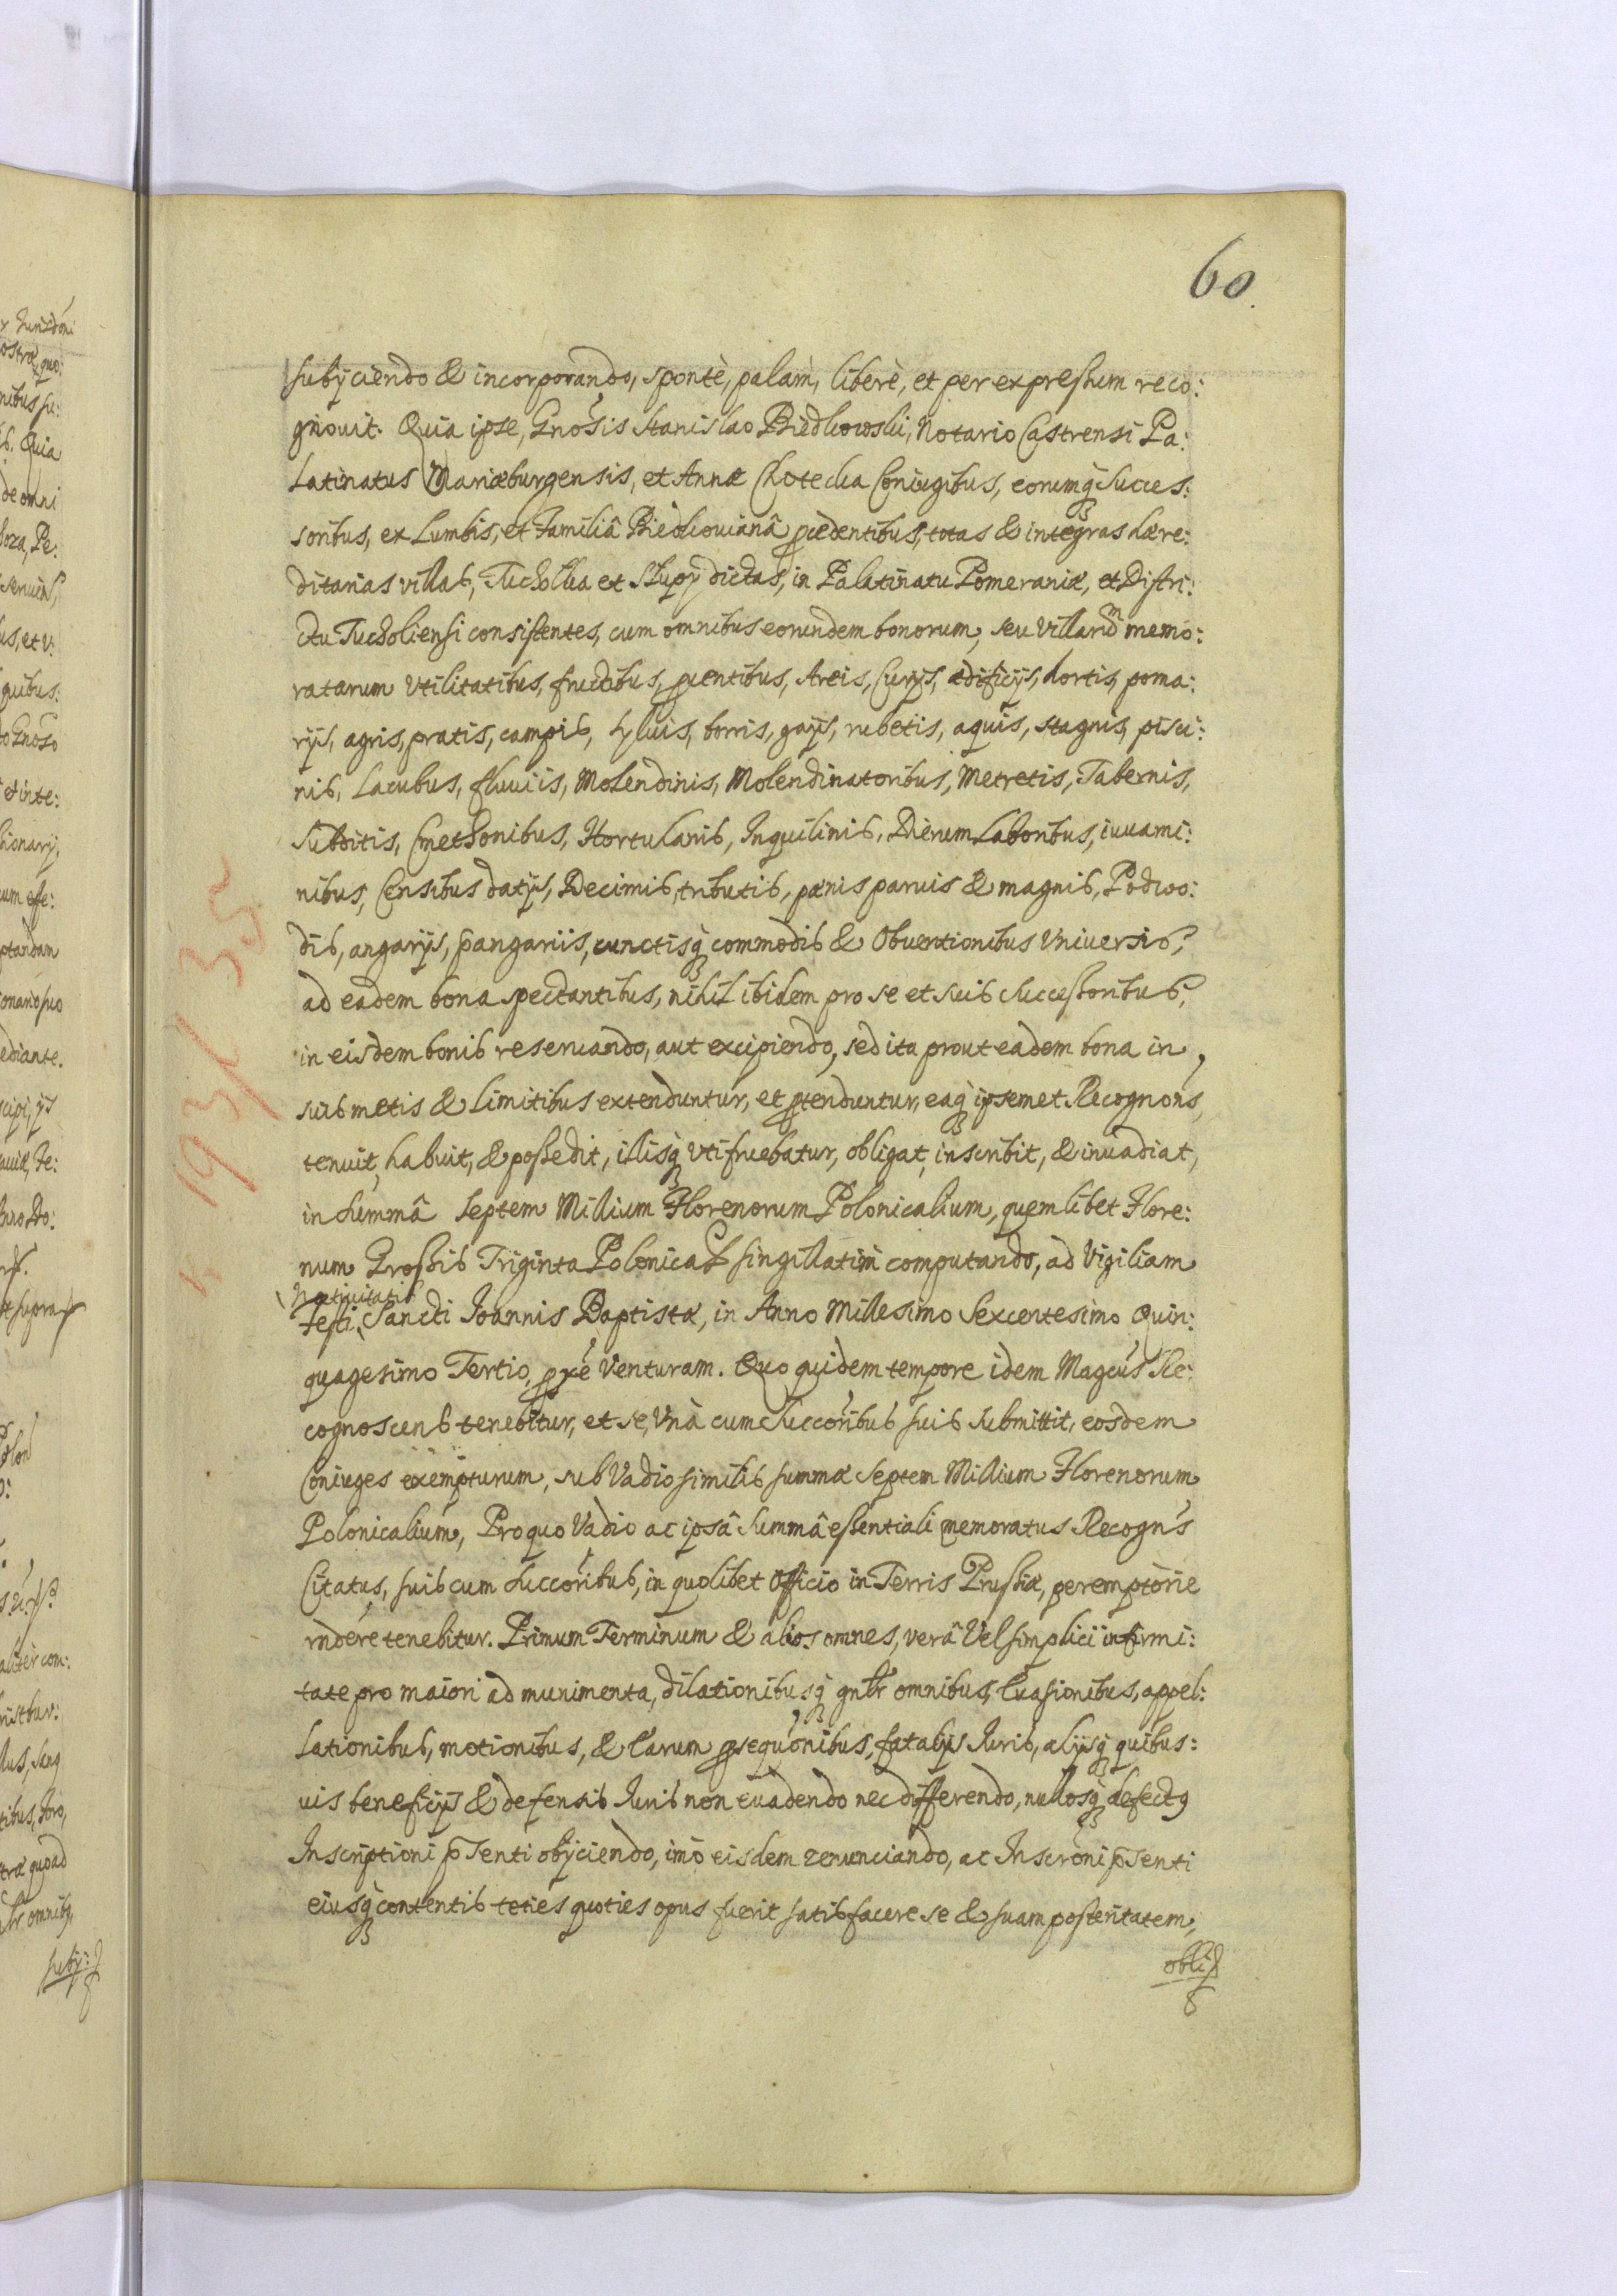 60.
subijciendo & incorporando, spontè, palàm, liberè, et per expressum reco:
gnouit. Quia ipse, Gnosis Stanislao Biedkowski, Notario Castrensi Pa:
latinatus Mariæburgensis, et Annæ Coniugibus, eorumq̃ succes:
soribus, ex Lumbis, et Familiâ Biedkouianâ p̱cedentibus, totas & integras hære:
ditarias villas, Tuchołka et Słupy dictas, in Palatinatu Pomeraniæ, et Distri:
ctu Tucholiensi consistentes, cum omnibus eorundem bonorum, seu Villarū memo:
ratarum vtilitatibus, fructibus, p̱uentibus, Areis, Curijs, ædificijs, hortis, poma:
rijs, agris, pratis, campis, syluis, borris, gays, rubetis, aquis, stagnis, pisci:
nis, Lacubus, fluuiis, Molendinis, Molendinatoribus, Metretis, Tabernis,
Subditis, Cmethonibus, Hortulanis, Inquilinis, Dierum Laboribus, iuuami:
nibus, Censibus datijs, Decimis, tributis, pœnis paruis & magnis, Podwo:
dis, angarijs, p̄angariis, cunctisq̃ commodis & Obuentionibus Vniuersis,
ad eadem bona spectantibus, nihil ibidem pro se et suis Successoribus,
in eisdem bonis reseruando, aut excipiendo, sed ita prout eadem bona in
suis metis & limitibus extenduntur, et p̱tenduntur, eaq̃ ipsemet Recognoñs
tenuit, habuit, & possedit, illisq̃ vtifruebatur, obligat, inscribit, & inuadiat,
in Summâ Septem Millium Florenorum Polonicalium, quemlibet Flore:
num Grossis Triginta Polonical singillatim computando, ad Vigiliam
Natiuitatis
Festi Sancti Ioannis Baptistæ, in Anno Millesimo Sexcentesimo Quin:
quagesimo Tertio, p̱xe Venturam. Quo quidem tempore idem Magcus Re:
cognoscens tenebitur, et se, Vnà cum Succoribus suis submittit, eosdem
Coniuges exempturum, sub Vadio similis summæ Septem Millium Florenorum
Polonicalium, Pro quo Vadio ac ipsâ Summâ essentiali memoratus Recogns
Citatus, suis cum Succoribus, in quolibet Officio in Terris Prussiæ, peremptòrie
rndere tenebitur. Primum Terminum & alios omnes, verâ Vel simplici infirmi:
tate pro maiori ad munimenta, dilationibusq̃ gnlr omnibus, Euasionibus, appel:
lationibus, motionibus, & earum p̱sequonibus, fatalijs Iuris, alijsq̃ quibus:
uis beneficijs & defensis Iuris non euadendo nec differendo, nullosq̃ defectꝰ
Inscriptioni p̄senti obijciendo, imò eisdem renunciando, ac Inscroni p̄senti
eiusq̃ contentis toties quoties opus fuerit satisfacere se & suam posteritatem,
obli
1931 35